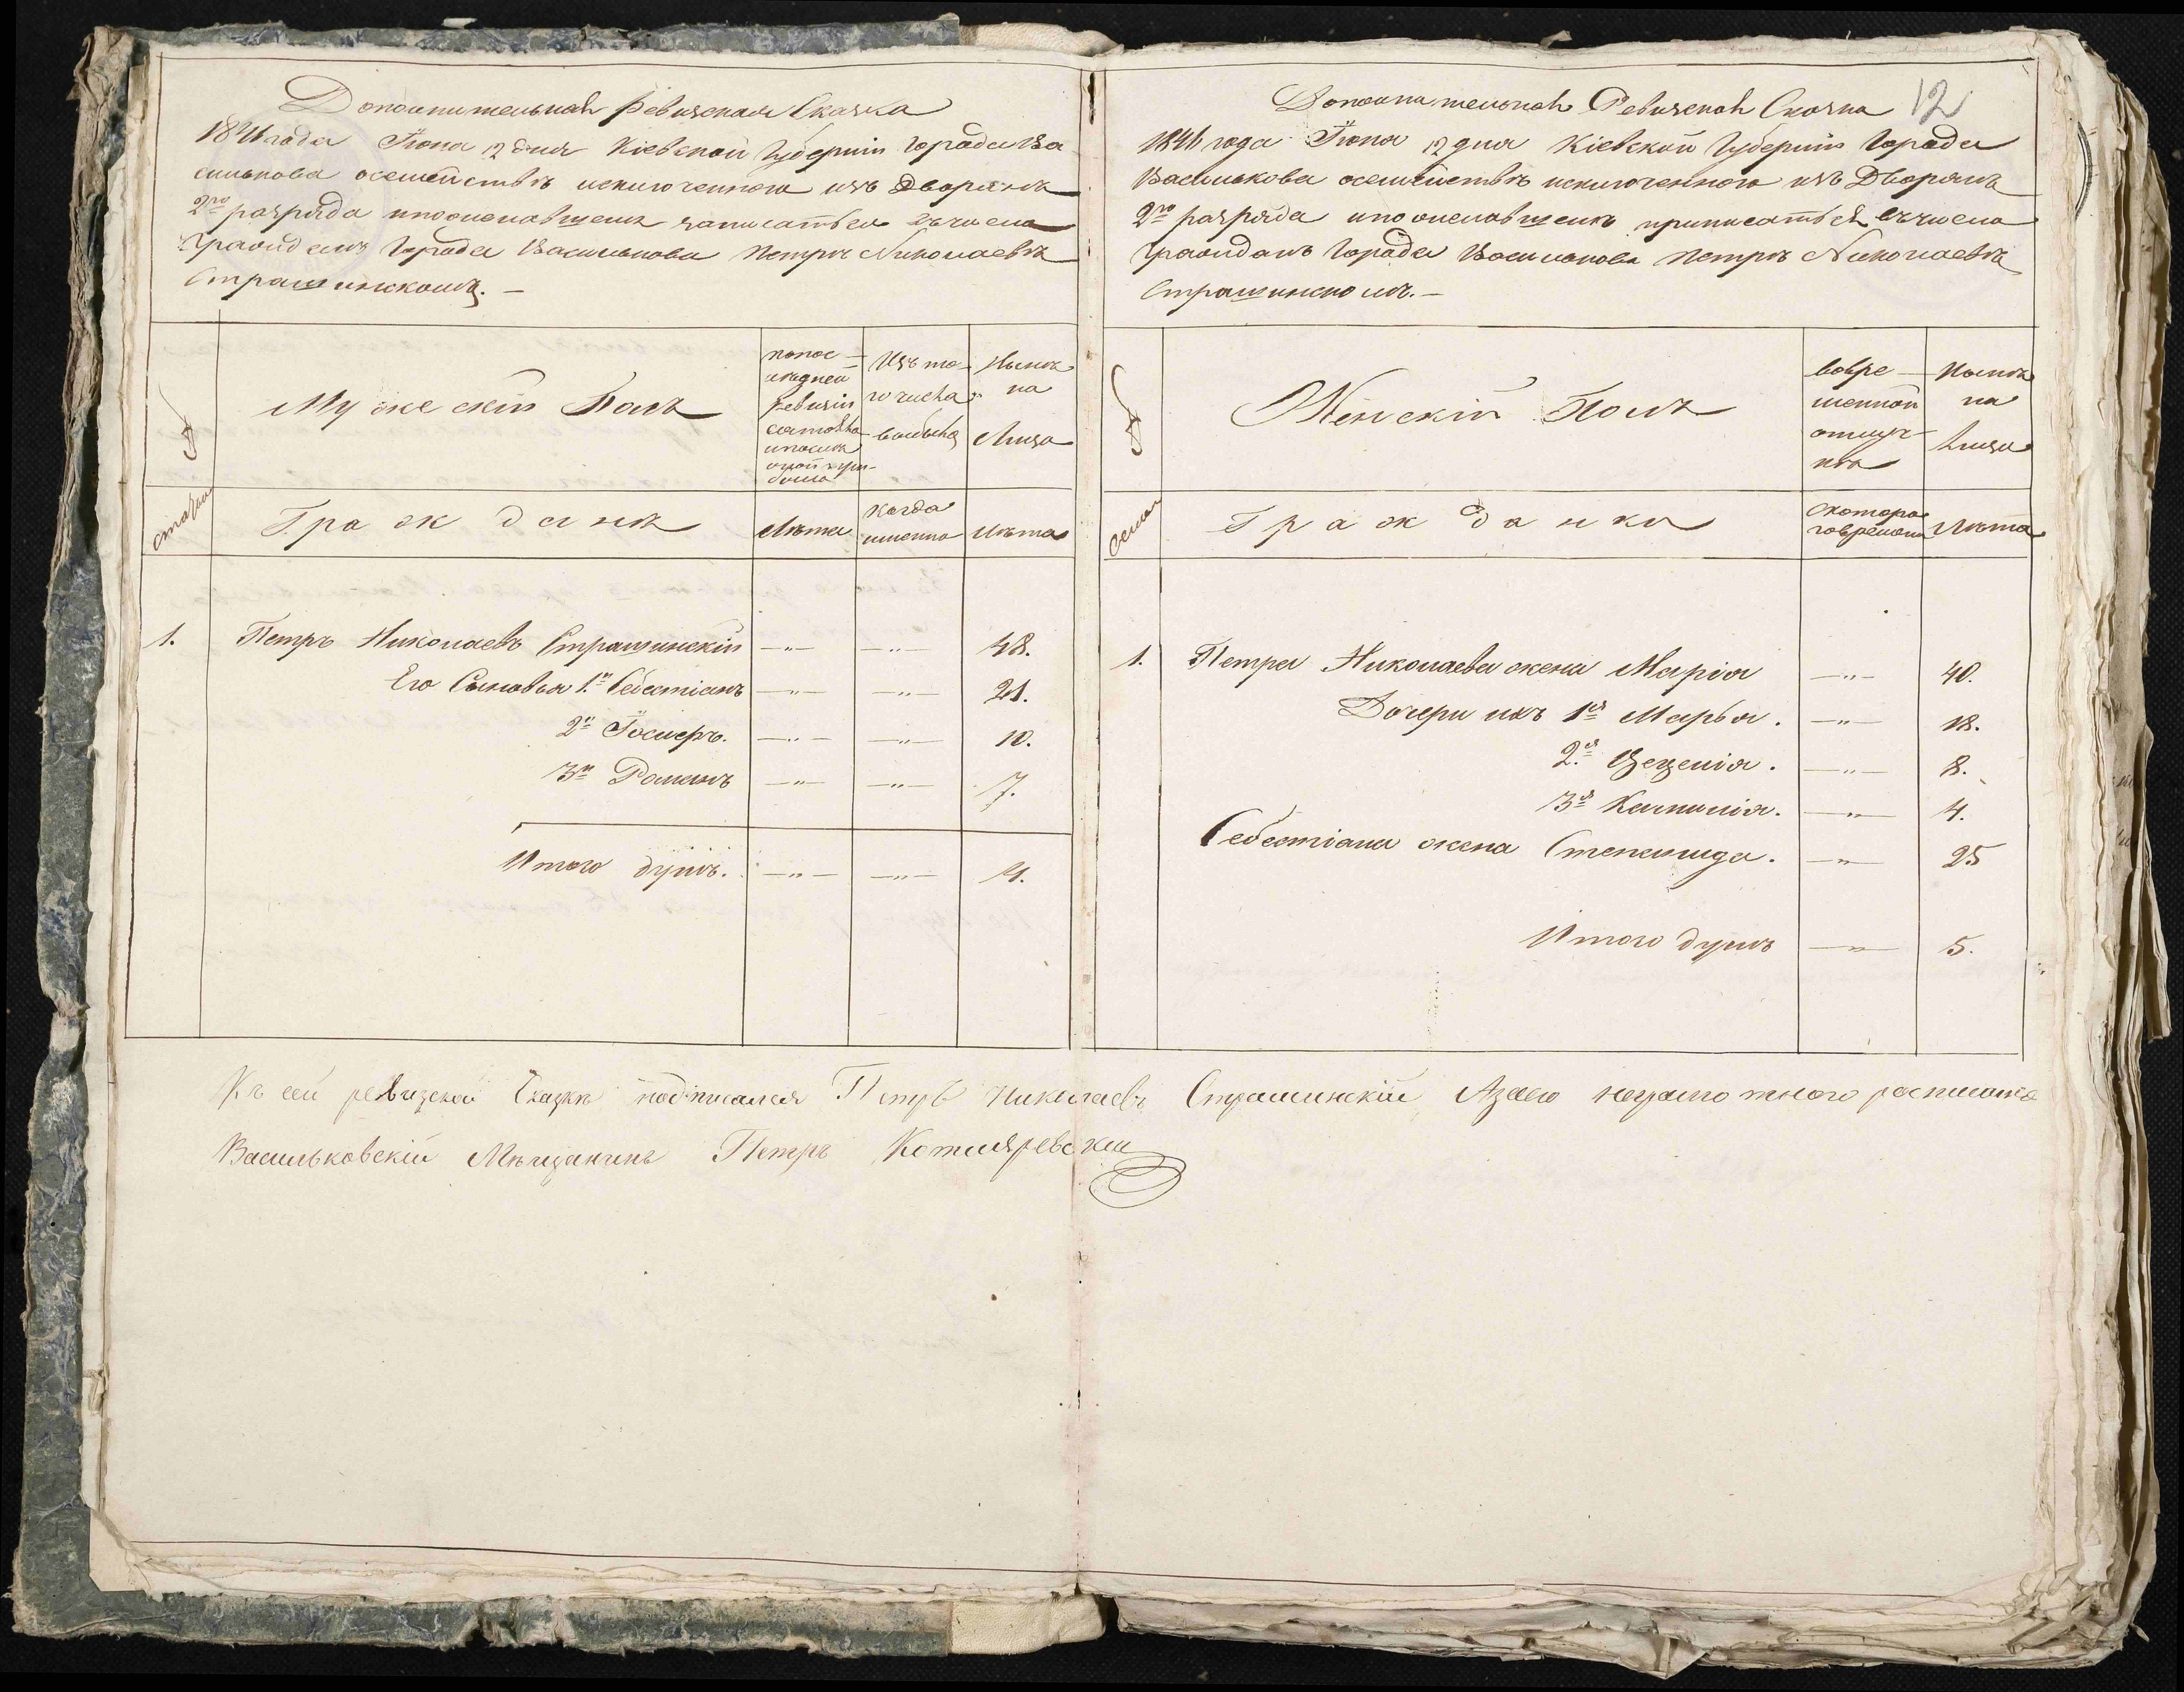 Дополнительная Ревизская Сказка
1846 года Іюня 12 дня Кіевской Губерніи Города Ва
силькова осемействѣ исключенного изъ Дворянъ
2го разряда ипожелавшемъ записатьея въчисло
Гражданъ Города Василькова Петрѣ Николаевѣ
Страшинскомъ. —
№
Мужескій Полъ
попос—
лѣдней
Ревизіи
состояло
ипослѣ
оной при-
было
Изъ то-
го числа
выбыло
Нынѣ
на
Лицо
Граждане
Лѣта
Когда
именно
Лѣта
1. Петръ Николаевъ Страшинскій —"— —"— 48.
Его Сыновья 1й Себестіанъ —"— —"— 21.
2й Іосиеръ. —"— —"— 10.
3й Романъ —"— —"— 7.
Итого душъ. —"— —"— 4.
12
Дополнительная Ревизская Сказка
1846 года Іюня 12 дня Кіевской Губерніи Города
Василькова осемействѣ исключенного изъ Дворянъ
2го разряда ипожелавшемъ приписатьея въчисло
Гражданъ Города Василькова Петрѣ Николаевѣ
Страшинскомъ. —
№
Женскій Полъ
вовре—
менной
отлуч-
кѣ
Нынѣ
на
Лицо
семьи
Гражданки
скотора
говремени
Лѣта
1. Петра Николаева жена Марія —"— 40.
Дочери ихъ 1я Марья. —"— 18.
2я Цецелія. —"— 8.
3я Камилія. —"— 4.
Себестіана жена Степанида. —"— 25
Итого душъ —"— 5.
Къ сей ревизской Сказкѣ подписался Петръ Николаевъ Страшинскій Азаего неграмотного росписался
Васильковскій Мѣщанинъ Петръ Котляревскій